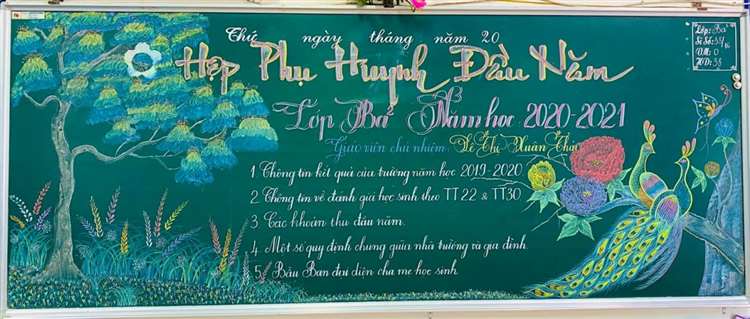 Thứ ngày tháng năm 20
Họp Phụ Huynh Đầu Năm
Lớp Ba² Năm học 2020-2021
Giáo viên chủ nhiệm: Lê Thị Xuân
1. Thông tin kết quả của trường năm học 2019-2020
2. Thông tin về đánh giá học sinh theo TT 22 & TT30
3. Các khoản thu đầu năm.
4. Một số quy định chung giữa nhà trường và gia đình.
5. Bầu Ban đại diện cha mẹ học sinh.
Lớp: Ba²